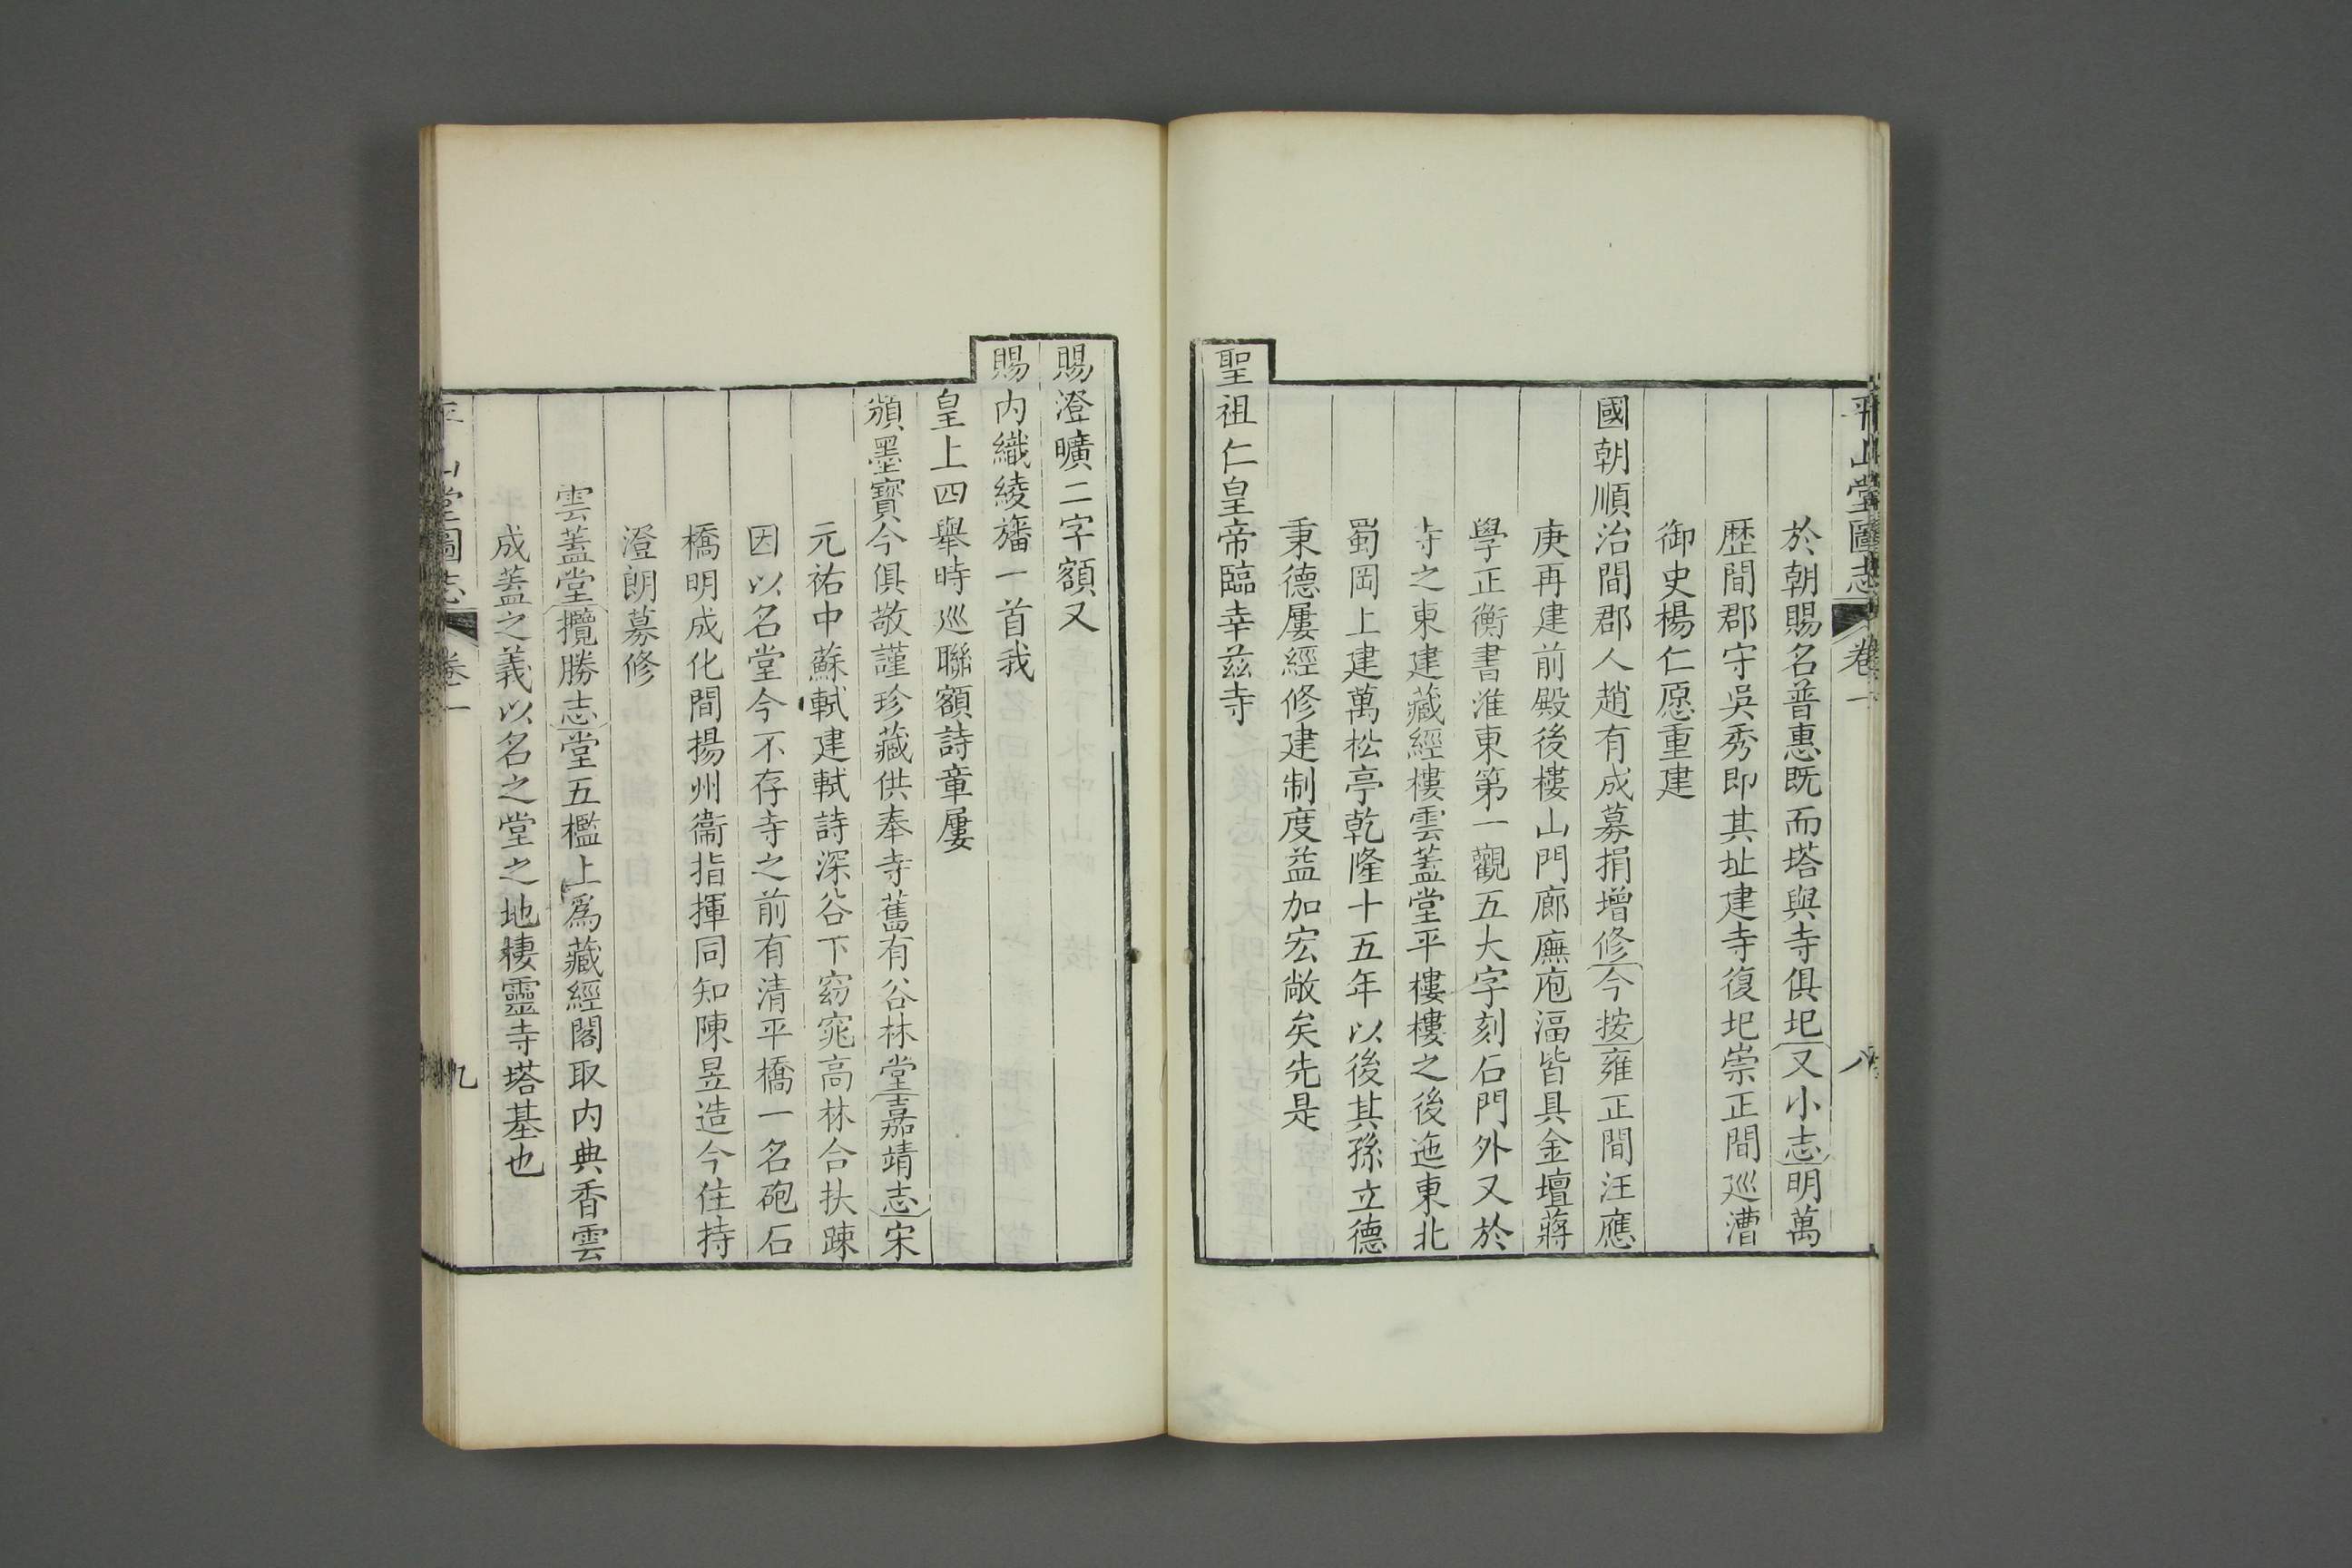 平山堂圖志 卷一 八
於朝賜名普惠既而塔與寺俱圮又小志明萬
歷間郡守吳秀即其址建寺復圮崇正間巡漕
御史楊仁愿重建
國朝順治間郡人趙有成募捐增修今按雍正間汪應
庚再建前殿後樓山門廊廡庖湢皆具金壇蔣
學正衡書淮東第一觀五大字刻石門外又於
寺之東建藏經樓雲蓋堂平樓樓之後迤東北
蜀岡上建萬松亭乾隆十五年以後其孫立德
秉德屢經修建制度益加宏敞矣先是
聖祖仁皇帝臨幸茲寺
賜澄曠二字額又
賜內織綾旛一首我
皇上四舉時巡聯額詩章屢
頒墨寶今俱敬謹珍藏供奉寺舊有谷林堂嘉靖志宋
元祐中蘇軾建軾詩深谷下窈窕高林合扶踈
因以名堂今不存寺之前有清平橋一名砲石
橋明成化間揚州衞指揮同知陳昱造今住持
澄朗募修
雲蓋堂攬勝志堂五檻上爲藏經閣取內典香雲
成蓋之義以名之堂之地棲靈寺塔基也
平山堂圖志 卷一 九